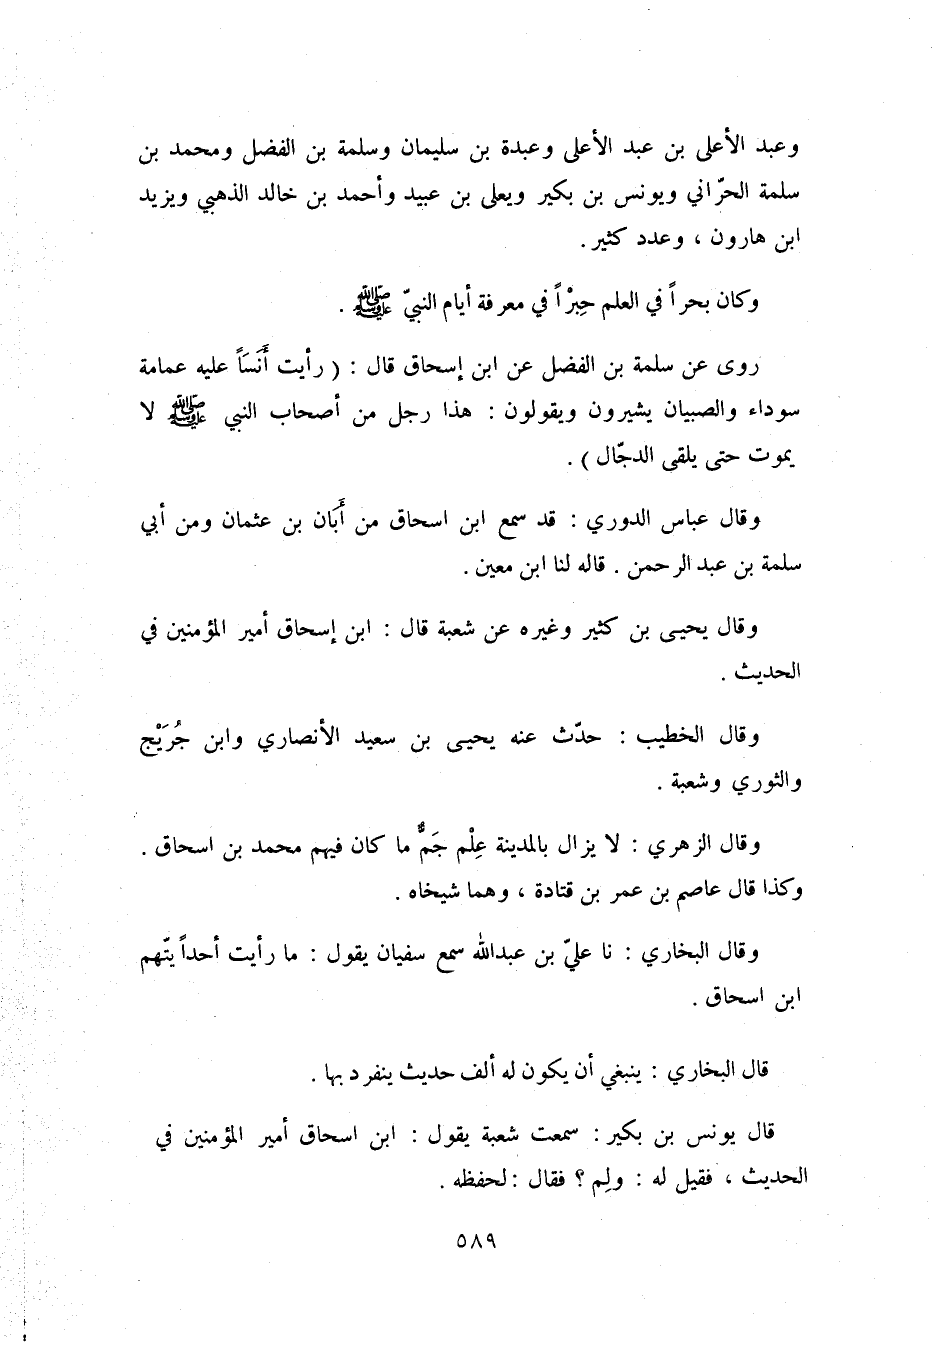 وعبد الأعلى بن عبد الأعلى وعبدة بن سليمان وسلمة بن الفضل ومحمد بن
سلمة الحرّاني ويونس بن بكير ويعلى بن عبيد وأحمد بن خالد الذهبي ويزيد
ابن هارون ، وعدد كثير .
وكان بحراً في العلم حِبْراً في معرفة أيام النبيّ ﷺ .
روى عن سلمة بن الفضل عن ابن إسحاق قال : ( رأيت أَنَسَاً عليه عمامة
سوداء والصبيان يشيرون ويقولون : هذا رجل من أصحاب النبي ﷺ لا
يموت حتى يلقى الدجّال ) .
وقال عباس الدوري : قد سمع ابن اسحاق من أَبَان بن عثمان ومن أبي
سلمة بن عبد الرحمن . قاله لنا ابن معين .
وقال يحيى بن كثير وغيره عن شعبة قال : ابن إسحاق أمير المؤمنين في
الحديث .
وقال الخطيب : حدّث عنه يحيى بن سعيد الأنصاري وابن جُرَيْج
والثوري وشعبة .
وقال الزهري : لا يزال بالمدينة عِلْم جَمٌّ ما كان فيهم محمد بن اسحاق .
وكذا قال عاصم بن عمر بن قتادة ، وهما شيخاه .
وقال البخاري : نا عليّ بن عبدالله سمع سفيان يقول : ما رأيت أحداً يتّهم
ابن اسحاق .
قال البخاري : ينبغي أن يكون له ألف حديث ينفرد بها .
قال يونس بن بكير : سمعت شعبة يقول : ابن اسحاق أمير المؤمنين في
الحديث ، فقيل له : ولِم ؟ فقال : لحفظه .
٥٨٩